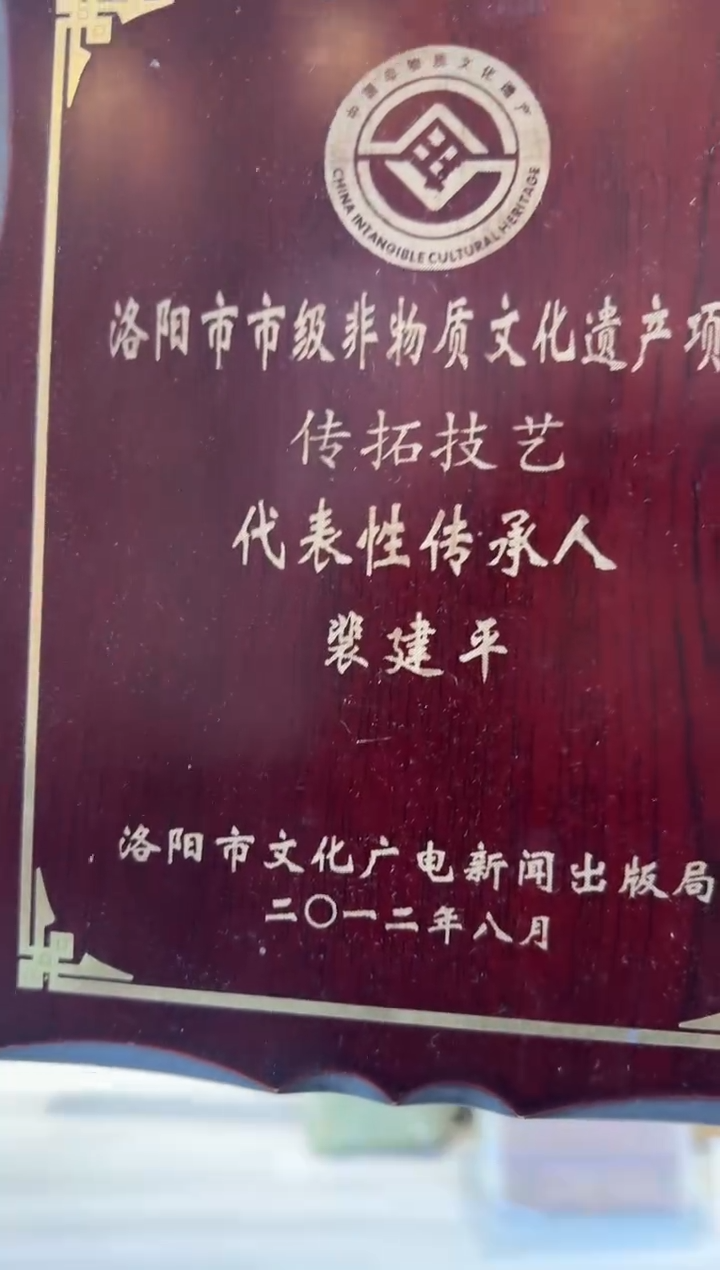 中国非物质文化遗产
CHINA INTANGIBLE CULTURAL HERITAGE
洛阳市市级非物质文化遗产项
传拓技艺
代表性传承人
裴建平
洛阳市文化广电新闻出版局
二〇一二年八月